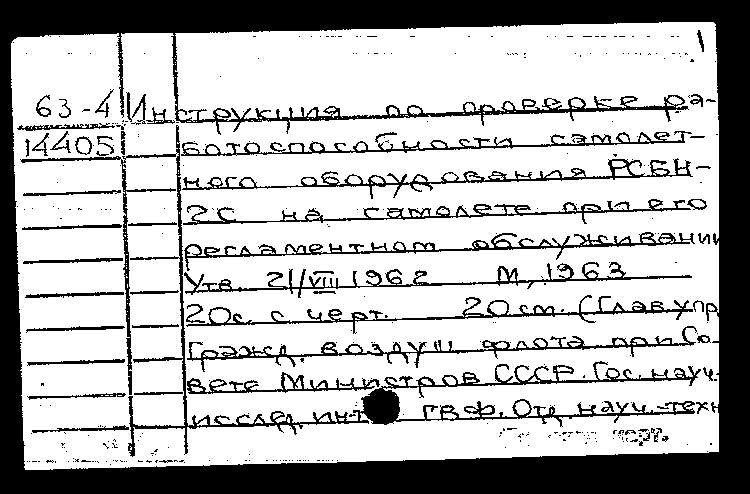 1
63-4 Инструкция по проверке ра-
14405 ботоспособности самолет-
ного оборудования РСБН-
2С на самолете при его
регламентном обслуживании
Утв. 21/VIII 1962 М., 1963
20с. с черт. 20см. (Глав. упр
Гражд. воздуш флота при Со-
вете Министров СССР. Гос. науч-
исслед. инт ГВФ. Отд науч.-техн
черт.